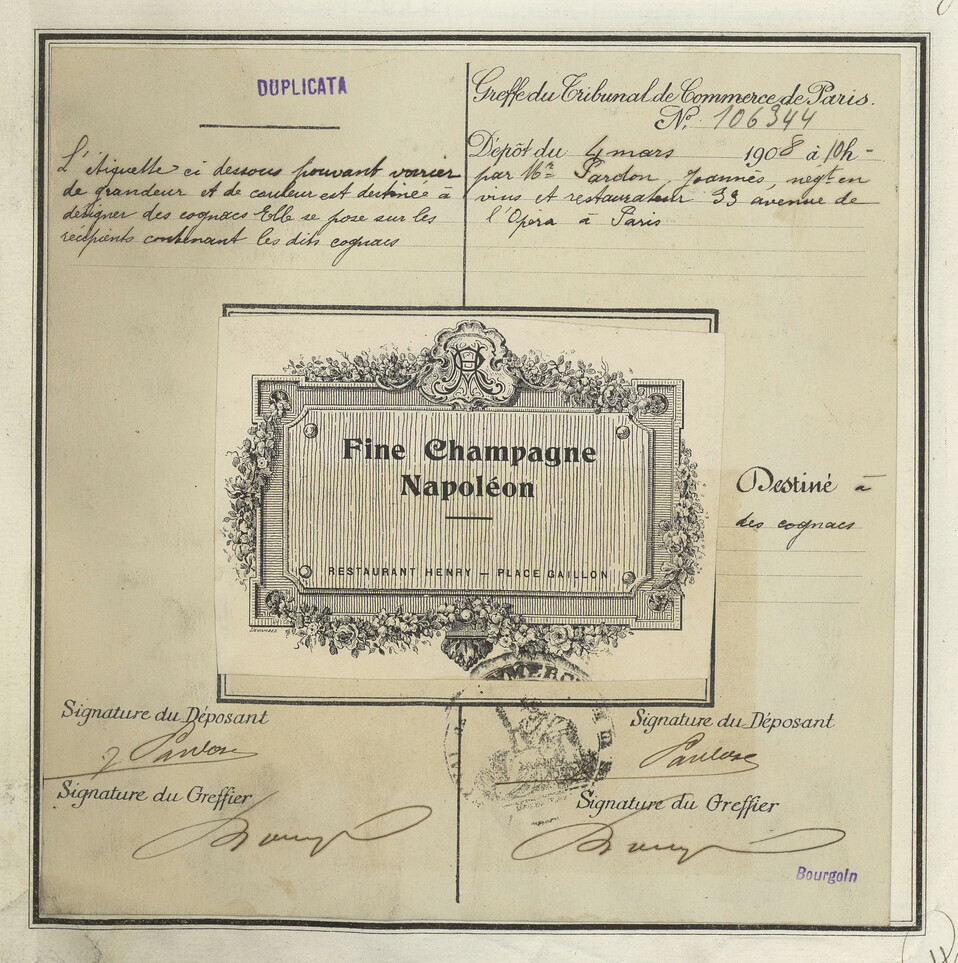 DUPLICATA
L'étiquette ci dessous pouvant varier
de grandeur et de couleur est destiné à
désigner des cognacs Elle se pose sur les
récipients contenant les dits cognacs
Greffe du Tribunal de Commerce de Paris.
No. 106344
Dépôt du 4 mars 1908 à 10h-
par Mr Pardon, Joannès, négt en
vins et restaurateur 33 avenue de
l'Opéra à Paris
Fine Champagne
Napoléon
RESTAURANT HENRY — PLACE GAILLON
Destiné à
des cognacs
COMMERCE
Signature du Déposant
J Pardon
Signature du Greffier
Signature du Déposant
Pardon
Signature du Greffier
Bourgoin